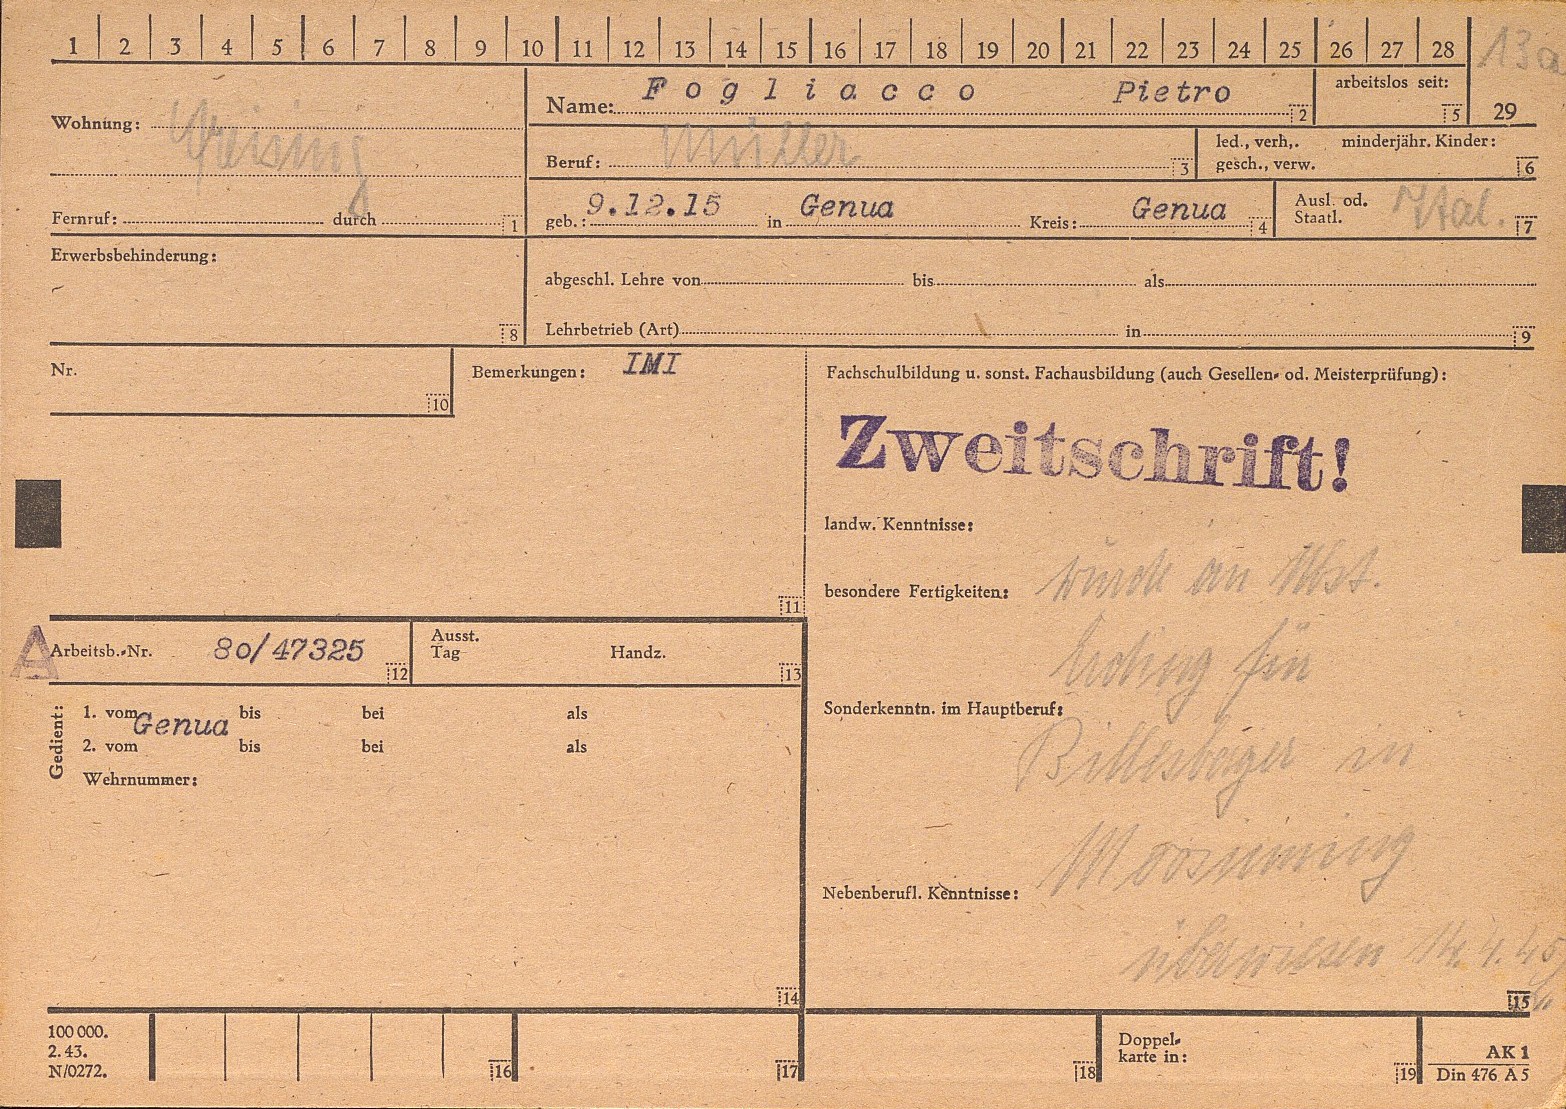 1 2 3 4 5 6 7 8 9 10 11 12 13 14 15 16 17 18 19 20 21 22 23 24 25 26 27 28 29
13a
Wohnung:
Fernruf: durch 1
Name: Fogliacco Pietro 2
arbeitslos seit: 5
Beruf: Müller 3
led., verh., minderjähr. Kinder:
gesch., verw. 6
geb.: 9.12.15 in Genua Kreis: Genua 4
Ausl. od.
Staatl. Ital. 7
Erwerbsbehinderung:
8
abgeschl. Lehre von bis als
Lehrbetrieb (Art) in 9
Nr.
10
Bemerkungen: IMI
11
Fachschulbildung u. sonst. Fachausbildung (auch Gesellen- od. Meisterprüfung):
Zweitschrift!
landw. Kenntnisse:
besondere Fertigkeiten:
wurde an
Erding für
Sonderkenntn. im Hauptberuf:
Billesberger in
Moosinning
Nebenberufl. Kenntnisse:
überwiesen 14.4.45
15
A
Arbeitsb.-Nr. 80/47325 12
Ausst.
Tag Handz. 13
Gedient:
1. vom Genua bis bei als
2. vom bis bei als
Wehrnummer:
14
100 000.
2. 43.
N/0272.
16 17 18
Doppel-
karte in: 19
AK 1
Din 476 A 5